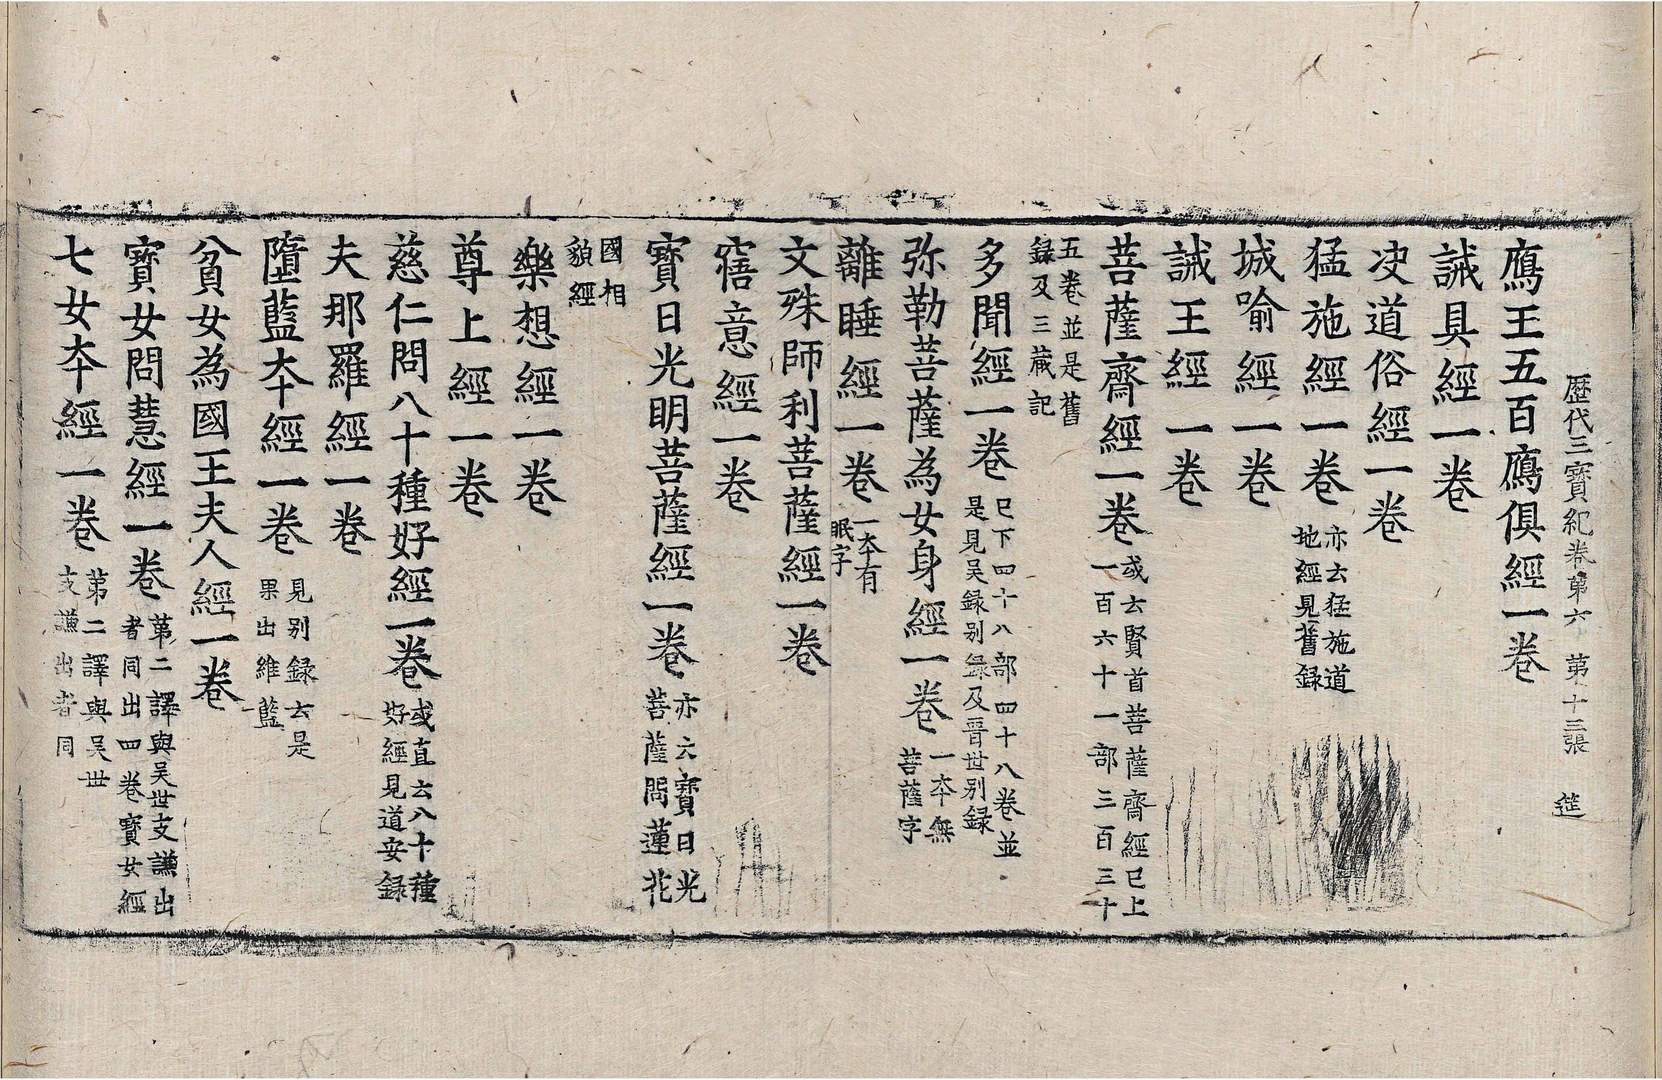 歷代三寶紀卷第六 第十三張 筵
鴈王五百鴈俱經一卷
誡具經一卷
决道俗經一卷
猛施經一卷 亦云猛施道地經見舊録
城喻經一卷
誡王經一卷
菩薩齋經一卷 或云賢首菩薩齋經已上一百六十一部三百三十
五卷並是舊録及三藏記
多聞經一卷 已下四十八部四十八卷並是見吴録别録及晋世别録
弥勒菩薩為女身經一卷 一夲無菩薩字
離睡經一卷 一夲有眠字
文殊師利菩薩經一卷
寤意經一卷
寶日光明菩薩經一卷 亦云寶日光菩薩問蓮花
國相貌經
樂想經一卷
尊上經一卷
慈仁問八十種好經一卷 或直云八十種好經見道安録
夫那羅經一卷
墮藍夲經一卷 見别録云是果出維藍
貧女為國王夫人經一卷
寶女問慧經一卷 第二譯與吴世支謙出者同出四卷寶女經
七女夲經一卷 第二譯與吴世支謙出者同